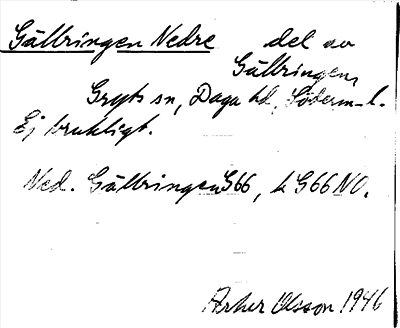 Gällringen Nedre del av
Gällringen,
Gryts sn, Daga hd, Söderm-l.
Ej brukligt.
Ned. Gällringen G66, k G66 NO.
Olsson 1946